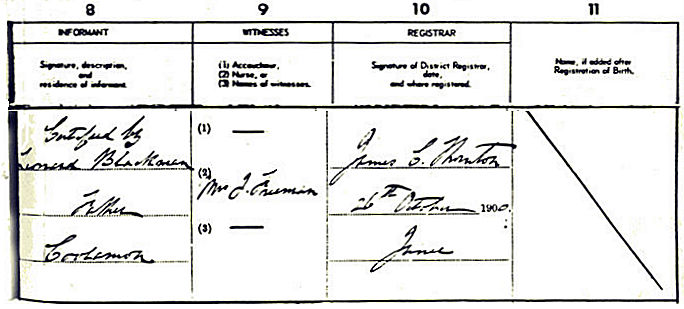 8 9 10 11
INFORMANT WITNESSES REGISTRAR
Signature, description,
and
residence of informant.
(1) Accoucheur,
(2) Nurse, or
(3) Names of witnesses.
Signature of District Registrar,
date,
and where registered.
Name, if added after
Registration of Birth.
Certified by
Leonard Blackman
Father
Coolamon
(1) —
(2)
Mrs J. Freeman
(3) —
James C. Thornton
26th October 1900.
Junee